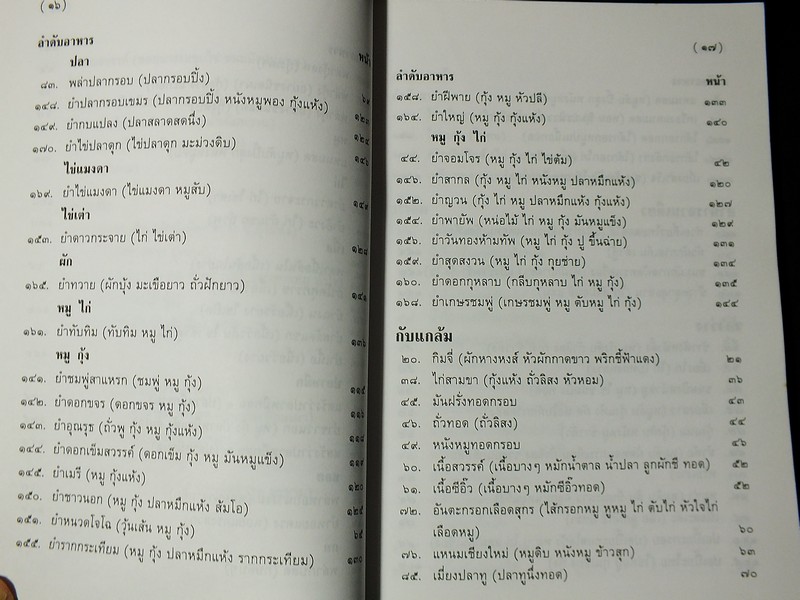 (๑๖)
ลำดับอาหาร
หน้า
ปลา
๘๓. พล่าปลากรอบ (ปลากรอบปิ้ง) ๖๙
๑๔๘. ยำปลากรอบเขมร (ปลากรอบปิ้ง หนังหมูพอง กุ้งแห้ง) ๑๒๓
๑๔๙. ยำกบแปลง (ปลาสลาดสดนึ่ง) ๑๒๔
๑๗๐. ยำไข่ปลาดุก (ไข่ปลาดุก มะม่วงดิบ) ๑๔๖
ไข่แมงดา
๑๖๙. ยำไข่แมงดา (ไข่แมงดา หมูสับ) ๑๔๕
ไข่เต่า
๑๕๓. ยำดาวกระจาย (ไก่ ไข่เต่า) ๑๒๘
ผัก
๑๖๕. ยำทวาย (ผักบุ้ง มะเขือยาว ถั่วฝักยาว) ๑๔๑
หมู ไก่
๑๖๑. ยำทับทิม (ทับทิม หมู ไก่) ๑๓๖
หมู กุ้ง
๑๔๑. ยำชมพู่สาแหรก (ชมพู่ หมู กุ้ง) ๑๑๕
๑๔๒. ยำดอกขจร (ดอกขจร หมู กุ้ง) ๑๑๖
๑๔๓. ยำอุณรุธ (ถั่วพู กุ้ง หมู กุ้งแห้ง) ๑๑๘
๑๔๔. ยำดอกเข็มสวรรค์ (ดอกเข็ม กุ้ง หมู มันหมูแข็ง) ๑๑๙
๑๔๕. ยำเมรี (หมู กุ้งแห้ง) ๑๒๐
๑๕๐. ยำชาวนอก (หมู กุ้ง ปลาหมึกแห้ง ส้มโอ) ๑๒๕
๑๕๑. ยำหนวดโจโฉ (วุ้นเส้น หมู กุ้ง) ๖๕
๑๕๕. ยำรากกระเทียม (หมู กุ้ง ปลาหมึกแห้ง รากกระเทียม) ๑๓๐
(๑๗)
ลำดับอาหาร
หน้า
๑๕๘. ยำฝีพาย (กุ้ง หมู หัวปลี) ๑๓๓
๑๖๔. ยำใหญ่ (หมู กุ้ง กุ้งแห้ง) ๑๔๐
หมู กุ้ง ไก่
๔๔. ยำจอมโจร (หมู กุ้ง ไก่ ไข่ต้ม) ๔๒
๑๔๖. ยำสากล (กุ้ง หมู ไก่ หนังหมู ปลาหมึกแห้ง) ๑๒๐
๑๕๒. ยำญวน (กุ้ง ไก่ หมู ปลาหมึกแห้ง กุ้งแห้ง) ๑๒๗
๑๕๔. ยำพายัพ (หน่อไม้ ไก่ หมู กุ้ง มันหมูแข็ง) ๑๒๙
๑๕๖. ยำวันทองห้ามทัพ (หมู ไก่ กุ้ง ปู ขึ้นฉ่าย) ๑๓๑
๑๕๙. ยำสุดสงวน (หมู ไก่ กุ้ง กุยช่าย) ๑๓๔
๑๖๐. ยำดอกกุหลาบ (กลีบกุหลาบ ไก่ หมู กุ้ง) ๑๓๕
๑๖๘. ยำเกษรชมพู่ (เกษรชมพู่ หมู ตับหมู ไก่ กุ้ง) ๑๔๔
กับแกล้ม
๒๐. กิมจี่ (ผักหางหงส์ หัวผักกาดขาว พริกชี้ฟ้าแดง) ๒๑
๓๘. ไก่สามขา (กุ้งแห้ง ถั่วลิสง หัวหอม) ๓๖
๔๕. มันฝรั่งทอดกรอบ ๔๓
๔๖. ถั่วทอด (ถั่วลิสง) ๔๔
๔๙. หนังหมูทอดกรอบ ๔๖
๖๐. เนื้อสวรรค์ (เนื้อบางๆ หมักน้ำตาล น้ำปลา ลูกผักชี ทอด) ๕๒
๖๑. เนื้อซีอิ๊ว (เนื้อบางๆ หมักซีอิ๊วทอด) ๕๒
๗๒. อันตะกรอกเลือดสุกร (ไส้กรอกหมู หูหมู ไก่ ตับไก่ หัวใจไก่
เลือดหมู) ๖๐
๗๖. แหนมเชียงใหม่ (หมูดิบ หนังหมู ข้าวสุก) ๖๓
๘๕. เมี่ยงปลาทู (ปลาทูนึ่งทอด) ๗๐